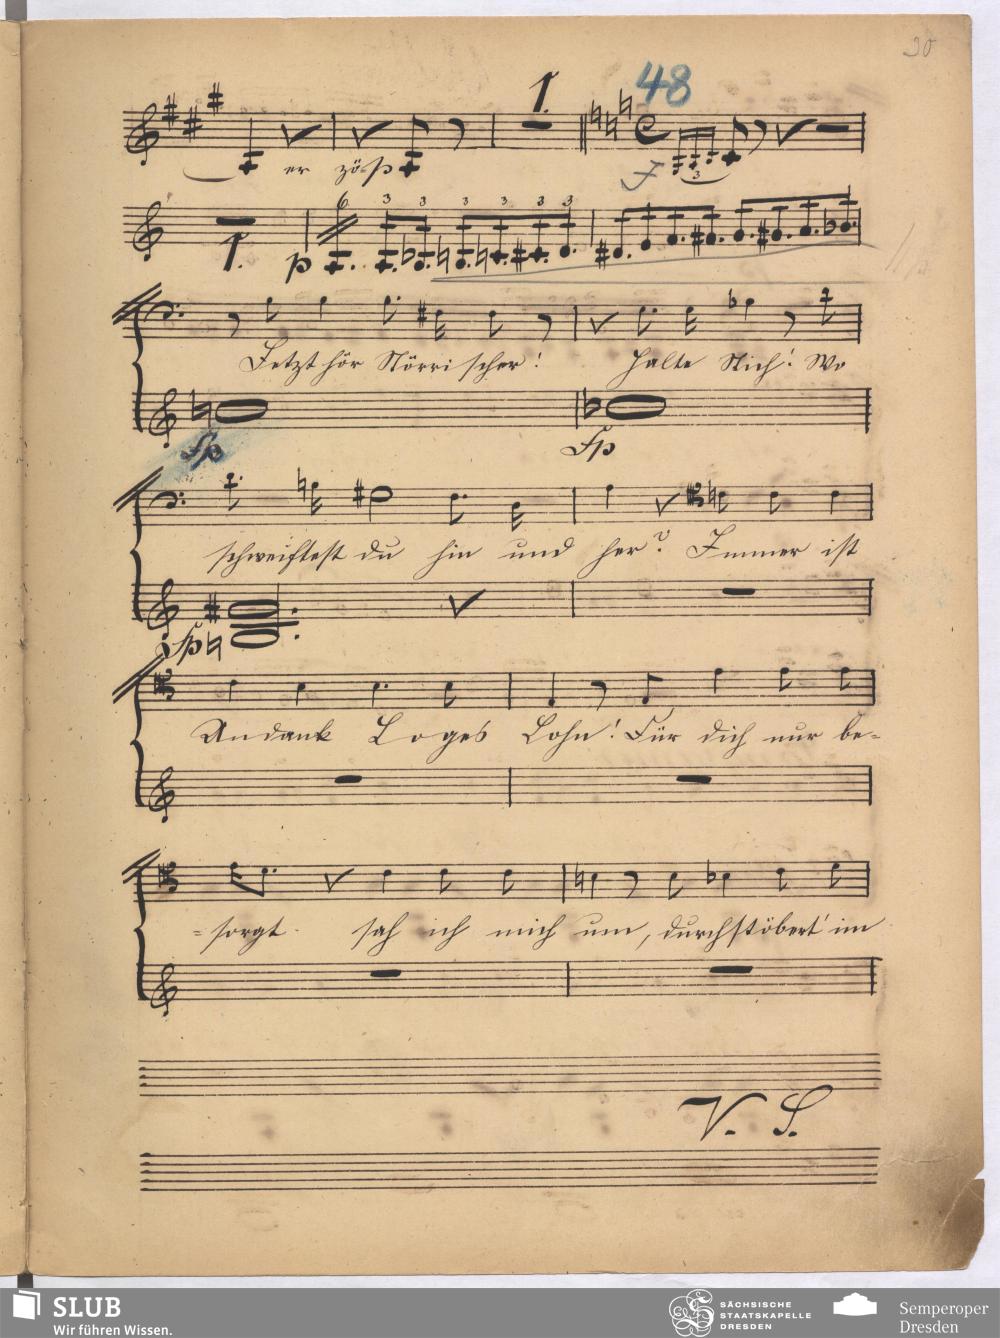 20
1.
48
er zöſ
F
3
6 3 3 3 3 3 3
1.
p
Jetzt hör Störrischer! Halte Stich! Wo
Fp Fp
schweiftest du hin und her? Immer ist
Fp
Undank Loges Lohn! Für dich nur be-
=sorgt sah ich mich um, durchstöbert' im
V. S.
SLUB
Wir führen Wissen.
SÄCHSISCHE
STAATSKAPELLE
DRESDEN
Semperoper
Dresden